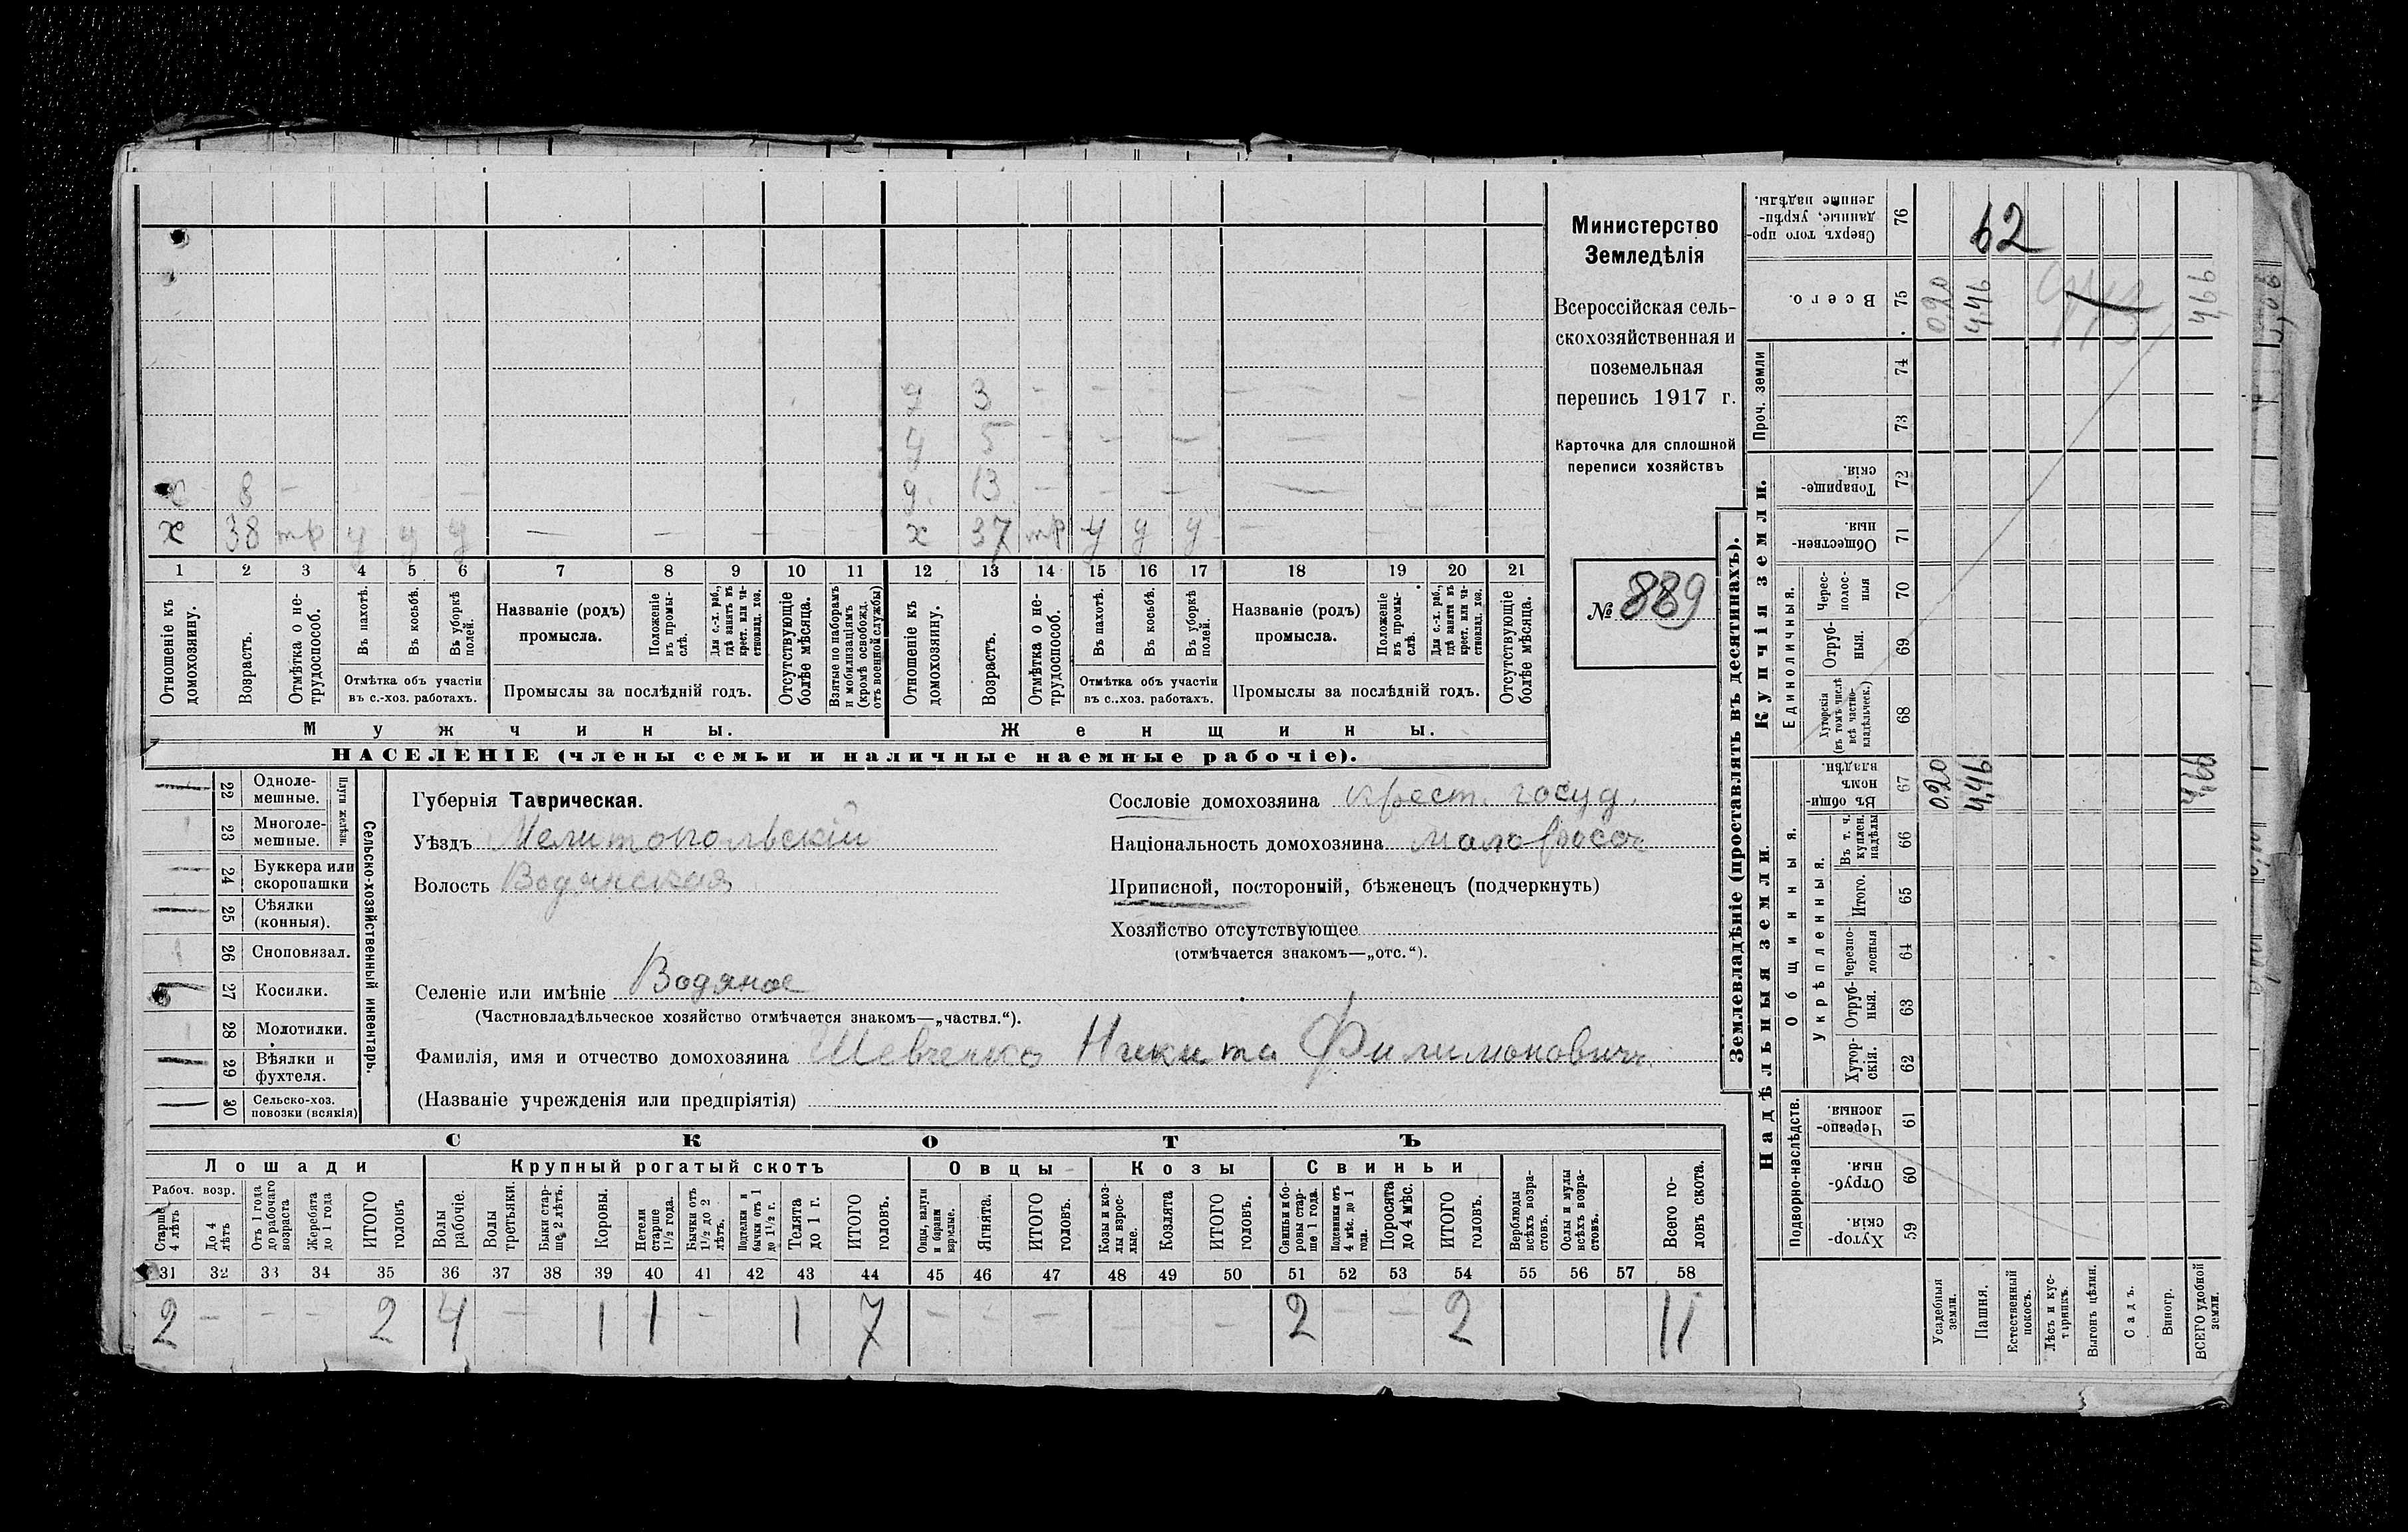 х 8 –
х 38 тр у у у — — — — —
д 3 - - - - - - -
д 5 - - - -
д. 13 - - - -
х 37 тр у у у - - -
1 2 3 4 5 6 7 8 9 10 11 12 13 14 15 16 17 18 19 20 21
Отношеніе къ домохозяину.
Возрастъ.
Отмѣтка о не-
трудоспособ.
Въ пахотѣ.
Въ косьбѣ.
Въ уборкѣ
полей.
Отмѣтка объ участіи
въ с.-хоз. работахъ.
Названіе (родъ)
промысла.
Положеніе
въ промы-
слѣ.
Для с.-х. раб.,
гдѣ занятъ въ
крест. или ча-
стновлад. хоз.
Промыслы за послѣдній годъ.
Отсутствующіе
болѣе мѣсяца.
Взятые по наборамъ
и мобилизаціямъ
(кромѣ освобожд.
отъ военной службы)
Отношеніе къ
домохозяину.
Возрастъ.
Отмѣтка о не-
трудоспособ.
Въ пахотѣ.
Въ косьбѣ.
Въ уборкѣ
полей.
Отмѣтка объ участіи
въ с..хоз. работахъ.
Названіе (родъ)
промысла.
Положеніе
въ промы-
слѣ.
Для с.-х. раб.,
гдѣ занята въ
крест. или ча-
стновлад. хоз.
Промыслы за послѣдній годъ.
Отсутствующіе
болѣе мѣсяца.
Мужчины.
Женщины.
НАСЕЛЕНІЕ (члены семьи и наличные наемные рабочіе).
Министерство
Земледѣлія
Всероссійская сель-
скохозяйственная и
поземельная
перепись 1917 г.
Карточка для сплошной
переписи хозяйствъ
№ 889
22 Одноле-
мешные.
23 Многоле-
мешные.
Плуги желѣзн.
24 Буккера или
скоропашки
25 Сѣялки
(конныя).
26 Сноповязал.
27 Косилки.
28 Молотилки.
29 Вѣялки и
фухтеля.
30 Сельско-хоз.
повозки (всякія)
Сельско-хозяйственный инвентарь.
Губернія Таврическая.
Уѣздъ Мелитопольскій
Волость Водянская
Селеніе или имѣніе Водяное
(Частновладѣльческое хозяйство отмѣчается знакомъ—„частвл.“).
Фамилія, имя и отчество домохозяина Шевченко Никита Филимоновичъ
(Названіе учрежденія или предпріятія)
Сословіе домохозяина крест. госуд.
Національность домохозяина малоросс
Приписной, посторонній, бѣженецъ (подчеркнуть)
Хозяйство отсутствующее
(отмѣчается знакомъ—„отс.“).
СКОТЪ
Лошади
Крупный рогатый скотъ
Овцы
Козы
Свиньи
Рабоч. возр.
Старше
4 лѣтъ
До 4
лѣтъ
Отъ 1 года
до рабочаго
возраста
Жеребята
до 1 года
ИТОГО
головъ
Волы
рабочіе.
Волы
третьяки.
Быки стар-
ше 2 лѣтъ.
Коровы.
Нетели
старше
1½ года.
Бычки отъ
1½ до 2
лѣтъ.
Подтелки и
бычки отъ 1
до 1½ г.
Телята
до 1 г.
ИТОГО
головъ.
Овцы, валухи
и бараны
взрослые.
Ягнята.
ИТОГО
головъ.
Козы и коз-
лы взрос-
лые.
Козлята
ИТОГО
головъ.
Свиньи и бо-
ровы стар-
ше 1 года.
Подсвинки отъ
4 мѣс. до 1
года.
Поросята
до 4 мѣс.
ИТОГО
головъ.
Верблюды
всѣхъ возра-
стовъ.
Ослы и мулы
всѣхъ возра-
стовъ.
Всего го-
ловъ скота.
31 32 33 34 35 36 37 38 39 40 41 42 43 44 45 46 47 48 49 50 51 52 53 54 55 56 57 58
2 - - - 2 4 - 1 1 - 1 7 - - - - - - 2 - - 2 11
Землевладѣніе (проставлять въ десятинахъ).
Надѣльныя земли.
Купчія земли.
Проч. земли
Подворно-наслѣдств.
Общинныя.
Укрѣпленныя.
Единоличныя.
Хутор-
скія.
59
Отруб-
ныя.
60
Черезпо-
лосныя
61
Хутор-
скія.
62
Отруб-
ныя.
63
Черезпо-
лосныя
64
Итого.
65
Въ т. ч.
куплен.
надѣлы
66
Въ общин-
номъ
владѣн.
67
Хуторскія
(въ томъ числѣ
всѣ частно-
владѣльческ.)
68
Отруб-
ныя.
69
Черес-
полос-
ныя
70
Обществен-
ныя.
71
Товарище-
скія.
72
73
74
Всего.
75
Сверхъ того про-
данные, укрѣп-
ленные надѣлы.
76
Усадебныя
земли.
Пашня.
Естественный
покосъ.
Лѣсъ и кус-
тарникъ.
Выгонъ цѣлин.
Садъ.
Виногр.
ВСЕГО удобной
земли.
0,20 4,46 4,66
0,20 4,46 4,66
62